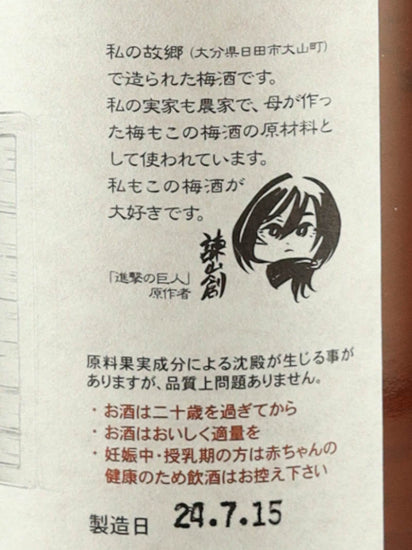 私の故郷(大分県日田市大山町)
で造られた梅酒です。
私の実家も農家で、母が作っ
た梅もこの梅酒の原材料と
して使われています。
私もこの梅酒が
大好きです。
諫山創
「進撃の巨人」
原作者
原料果実成分による沈殿が生じる事が
ありますが、品質上問題ありません。
・お酒は二十歳を過ぎてから
・お酒はおいしく適量を
・妊娠中・授乳期の方は赤ちゃんの
健康のため飲酒はお控え下さい
製造日 24.7.15